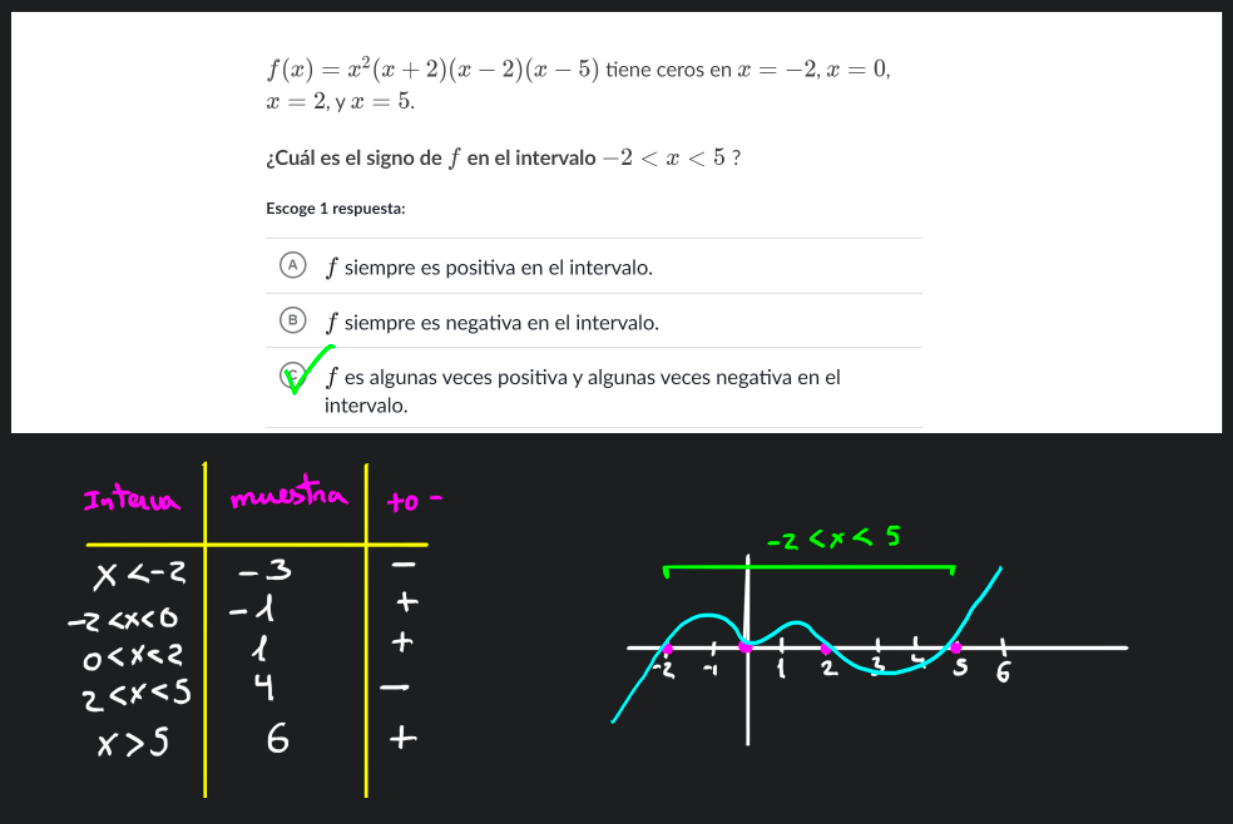 f(x) = x²(x + 2)(x − 2)(x − 5) tiene ceros en x = −2, x = 0,
x = 2, y x = 5.
¿Cuál es el signo de f en el intervalo −2 < x < 5 ?
Escoge 1 respuesta:
A f siempre es positiva en el intervalo.
B f siempre es negativa en el intervalo.
C f es algunas veces positiva y algunas veces negativa en el
intervalo.
Interva muestra + o -
x < -2 -3 −
-2 < x < 0 -1 +
0 < x < 2 1 +
2 < x < 5 4 −
x > 5 6 +
-2 < x < 5
-2 -1 1 2 3 4 5 6